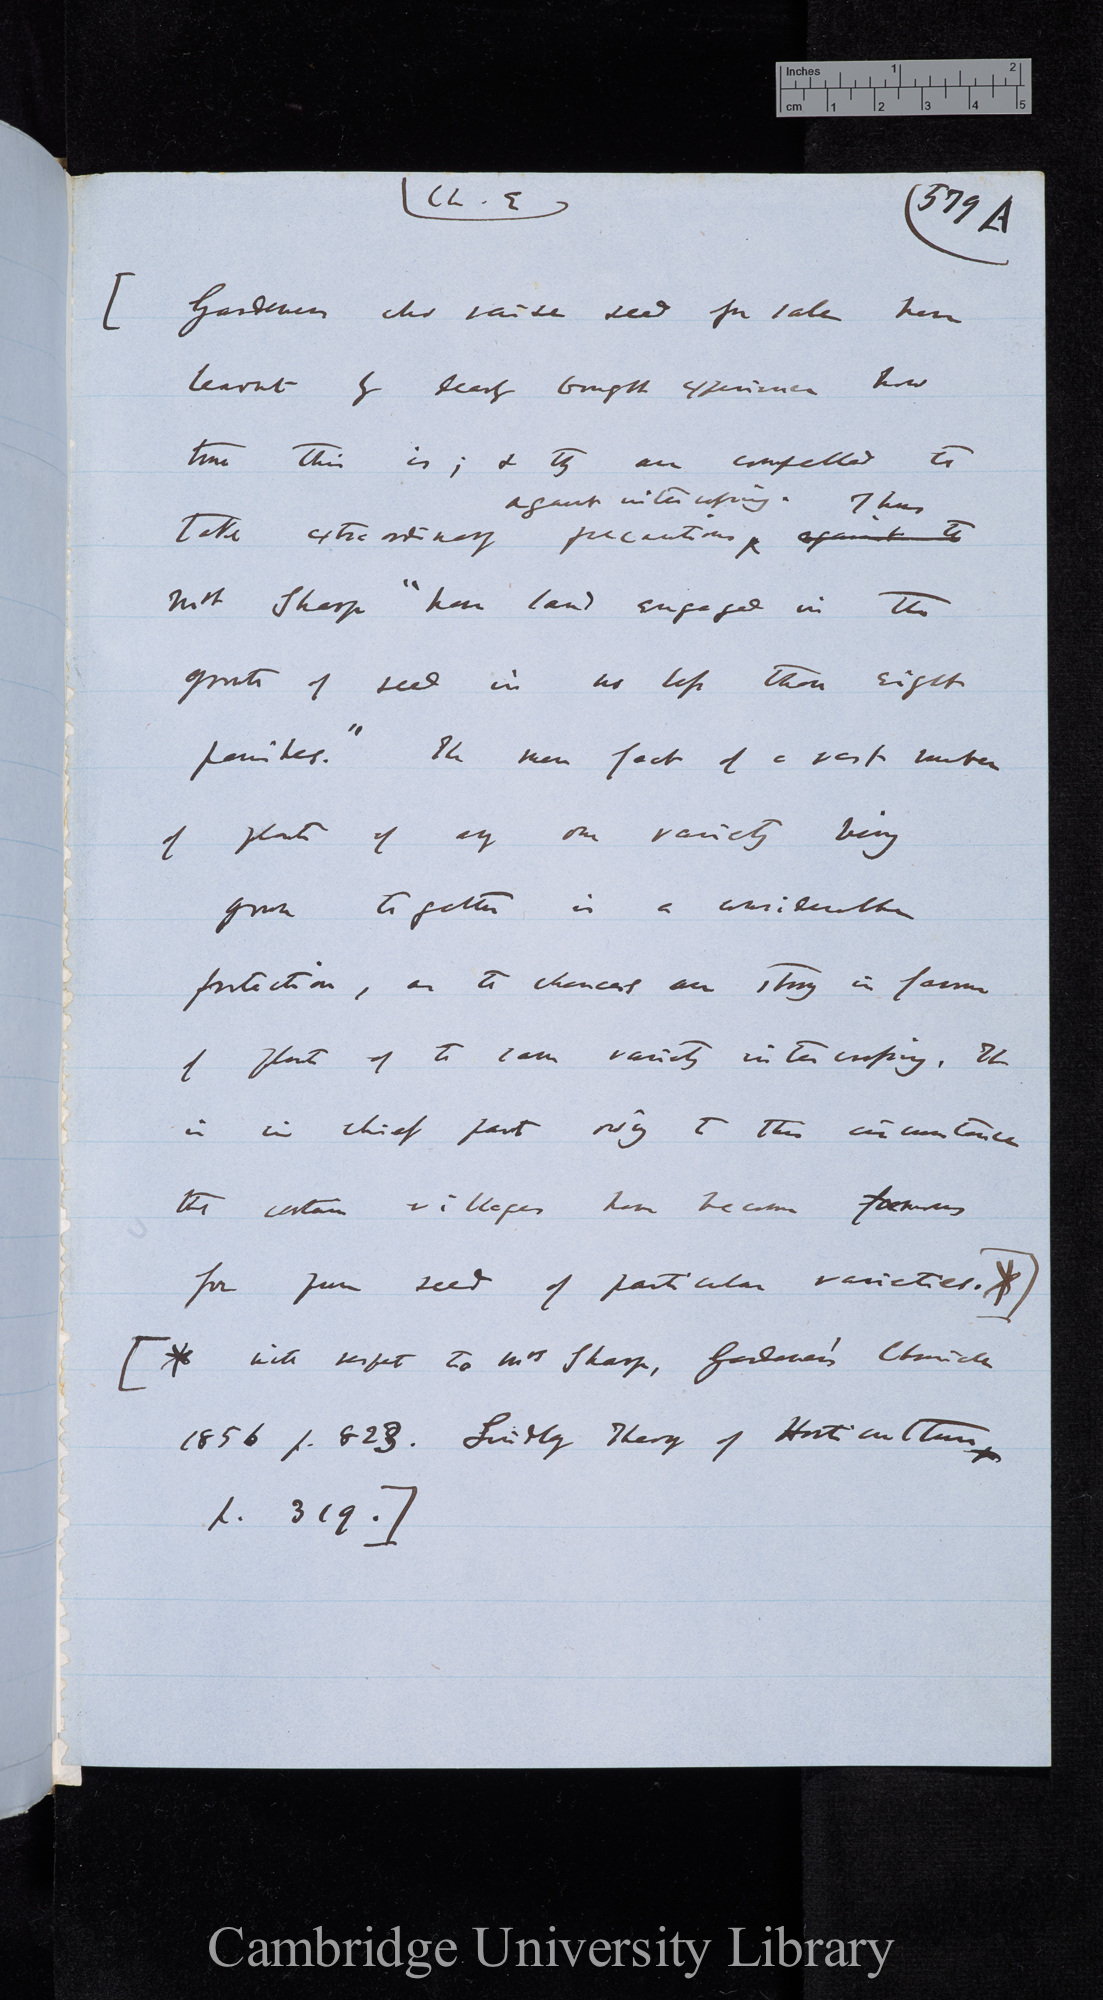 Inches 1 2
cm 1 2 3 4 5
Ch. 9
579 A
[ Gardeners who raise seed for sale have
learnt by dearly bought experience how
true this is; & they are compelled to
against intercrossing. Thus
take extraordinary precautions against the
Mssrs Sharp "have land engaged in the
growth of seed in no less than eight
parishes." The mere fact of a vast number
of plants of any one variety being
grown together is a considerable
protection, as the chances are strong in favour
of plants of the same variety intercrossing. It
is in chief part owing to this circumstance
that certain villages have become famous
for pure seed of particular varieties.*]
[* with respect to Mssrs Sharp, Gardener's Chronicle
1856 p. 823. Lindley Theory of Horticulture
p. 319.]
Cambridge University Library